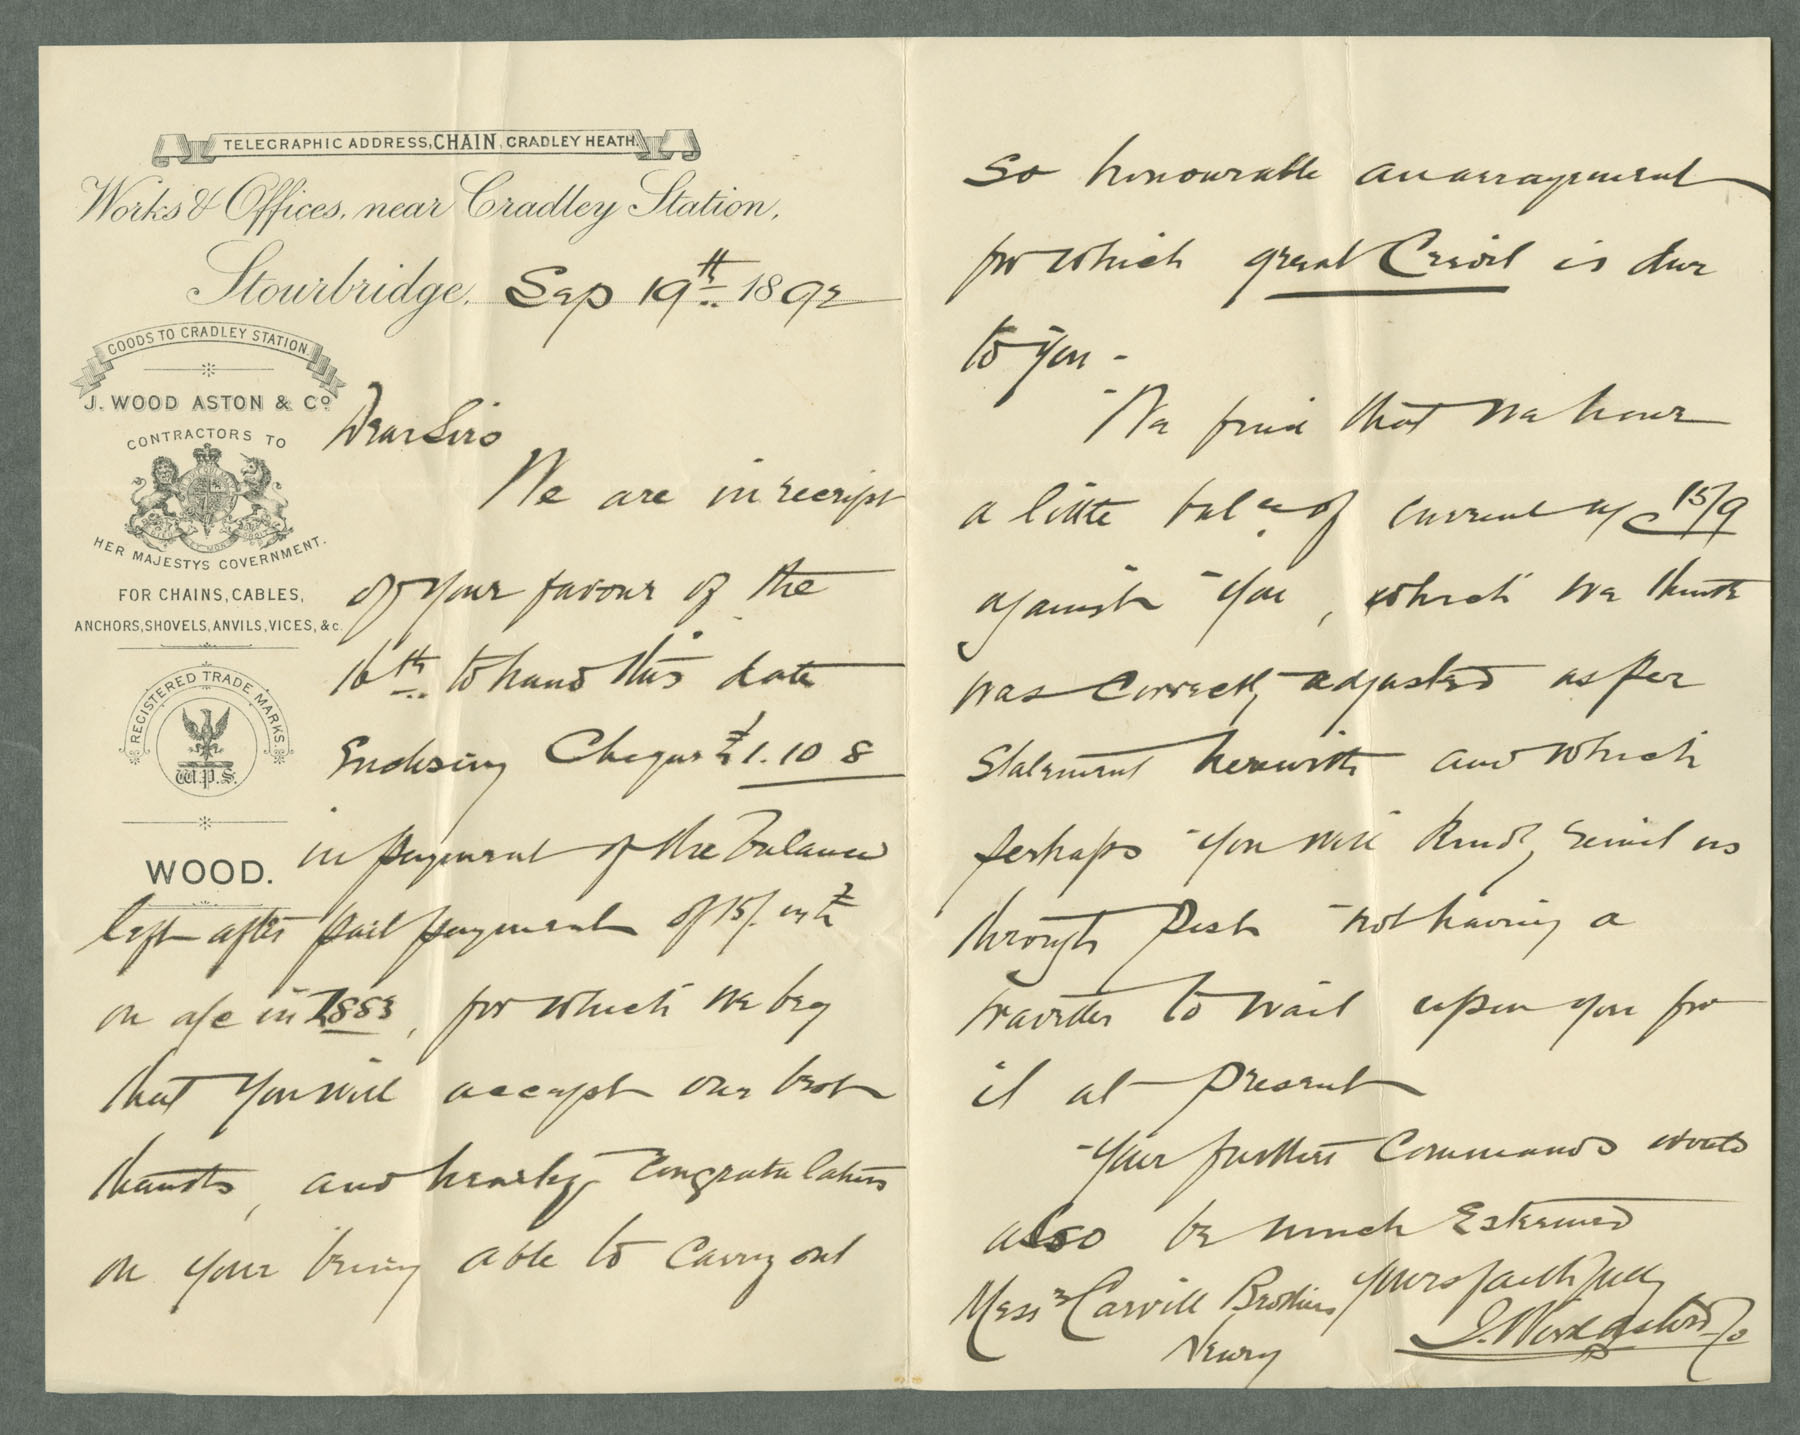 TELEGRAPHIC ADDRESS, CHAIN, CRADLEY HEATH.
Works & Offices, near Cradley Station,
Stourbridge, Sep 19th 1892
GOODS TO CRADLEY STATION.
J. WOOD ASTON & Co
CONTRACTORS TO
HER MAJESTYS GOVERNMENT.
FOR CHAINS, CABLES,
ANCHORS, SHOVELS, ANVILS, VICES, &c.
REGISTERED TRADE MARKS.
W.P.S.
WOOD.
Dear Sirs
We are in receipt
of your favour of the
16th to hand this date
Enclosing Cheque £1.10 8
in payment of the balance
left after part payment of 15/. in the £
on a/c in 1883, for which we beg
that you will accept our best
thanks, and hearty congratulations
on your being able to carry out
so honourable an arrangement
for which great Credit is due
to you -
We find that we have
a little balce of current a/c 15/9
against you, which we think
was correctly adjusted as per
Statement herewith and which
perhaps you will kindly remit us
through Post not having a
traveller to wait upon you for
it at present
Your further Commands would
also be much Esteemed
Yours faithfully
J. Wood Aston & Co
Messrs Carvill Brothers
Newry